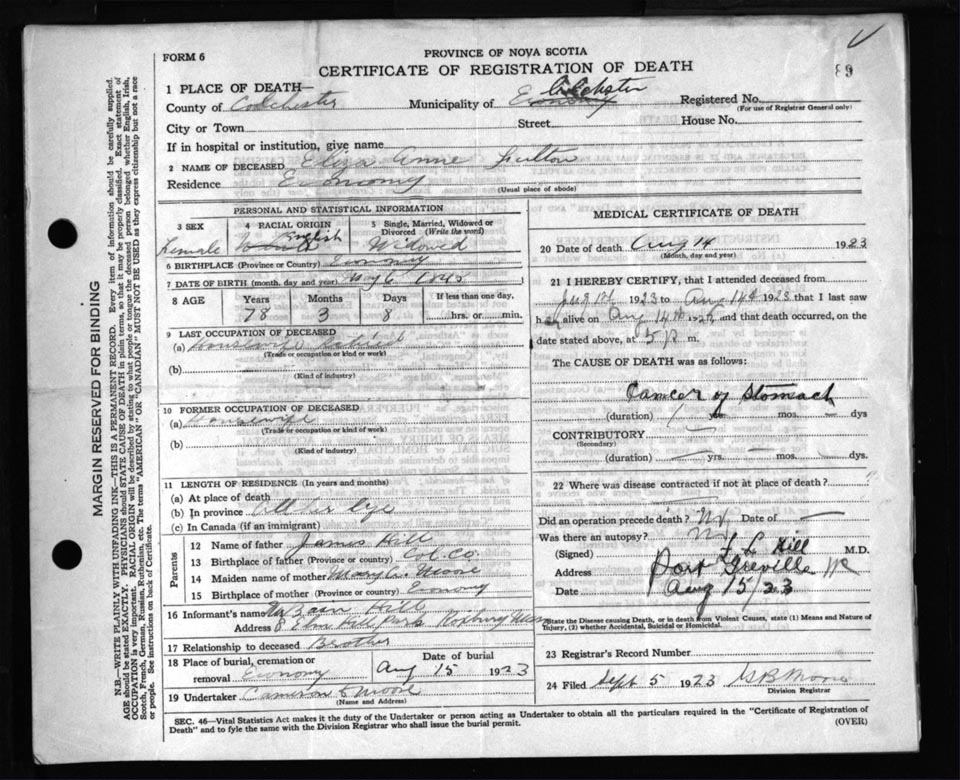 FORM 6
PROVINCE OF NOVA SCOTIA
CERTIFICATE OF REGISTRATION OF DEATH
89
1 PLACE OF DEATH—
County of Colchester Municipality of Economy Colchester Registered No.
(For use of Registrar General only)
City or Town Street House No.
If in hospital or institution, give name
2 NAME OF DECEASED Eliza Anne Fulton
Residence Economy
(Usual place of abode)
PERSONAL AND STATISTICAL INFORMATION
3 SEX 4 RACIAL ORIGIN 5 Single, Married, Widowed or Divorced (Write the word)
Female English Widowed
6 BIRTHPLACE (Province or Country) Economy
7 DATE OF BIRTH (month, day and year) May 6 1845
8 AGE Years Months Days If less than one day,
78 3 8 hrs. or min.
9 LAST OCCUPATION OF DECEASED
(a) Housewife Retired
(Trade or occupation or kind or work)
(b)
(Kind of industry)
10 FORMER OCCUPATION OF DECEASED
(a) Housewife
(Trade or occupation or kind or work)
(b)
(Kind of industry)
11 LENGTH OF RESIDENCE (In years and months)
(a) At place of death
(b) In province All her life
(c) In Canada (if an immigrant)
Parents
12 Name of father James Hill
13 Birthplace of father (Province or country) Col. Co.
14 Maiden name of mother Mary Moore
15 Birthplace of mother (Province or country) Economy
16 Informant's name Hill
Address 8 Elm Hill Park Roxbury Mass
17 Relationship to deceased Brother
18 Place of burial, cremation or removal Economy Date of burial Aug 15 1923
19 Undertaker Cameron C Moore
(Name and Address)
MEDICAL CERTIFICATE OF DEATH
20 Date of death Aug 14 1923
(Month, day and year)
21 I HEREBY CERTIFY, that I attended deceased from
1923 to Aug 14th 1923 that I last saw
her alive on Aug 14th 1923 and that death occurred, on
date stated above, at 5 P m.
The CAUSE OF DEATH was as follows:
Cancer of Stomach
(duration) 1 yrs mos. — dys
CONTRIBUTORY
(Secondary)
(duration) — yrs. — mos. — dys.
22 Where was disease contracted if not at place of death?
Did an operation precede death? No Date of —
Was there an autopsy? No
(Signed) F L Hill M.D.
Address Port Greville NS
Date Aug 15/23
State the Disease causing Death, or in death from Violent Causes, state (1) Means and Nature of Injury, (2) whether Accidental, Suicidal or Homicidal.
23 Registrar's Record Number
24 Filed Sept 5 1923 Moore
Division Registrar
SEC. 46—Vital Statistics Act makes it the duty of the Undertaker or person acting as Undertaker to obtain all the particulars required in the "Certificate of Registration of
Death" and to fyle the same with the Division Registrar who shall issue the burial permit. (OVER)
MARGIN RESERVED FOR BINDING
N.B.—WRITE PLAINLY WITH UNFADING INK—THIS IS A PERMANENT RECORD. Every item of information should be carefully supplied.
AGE should be stated EXACTLY. PHYSICIANS should STATE CAUSE OF DEATH in plain terms, so that it may be properly classified. Exact statement of
OCCUPATION is very important. RACIAL ORIGIN will be described by stating to what people or tongue the deceased person belonged whether English, Irish,
Scotch, French, German, Russian, Ruthenian, etc. The terms "AMERICAN" OR "CANADIAN" MUST NOT BE USED as they express citizenship but not a race
or people. See instructions on back of Certificate.